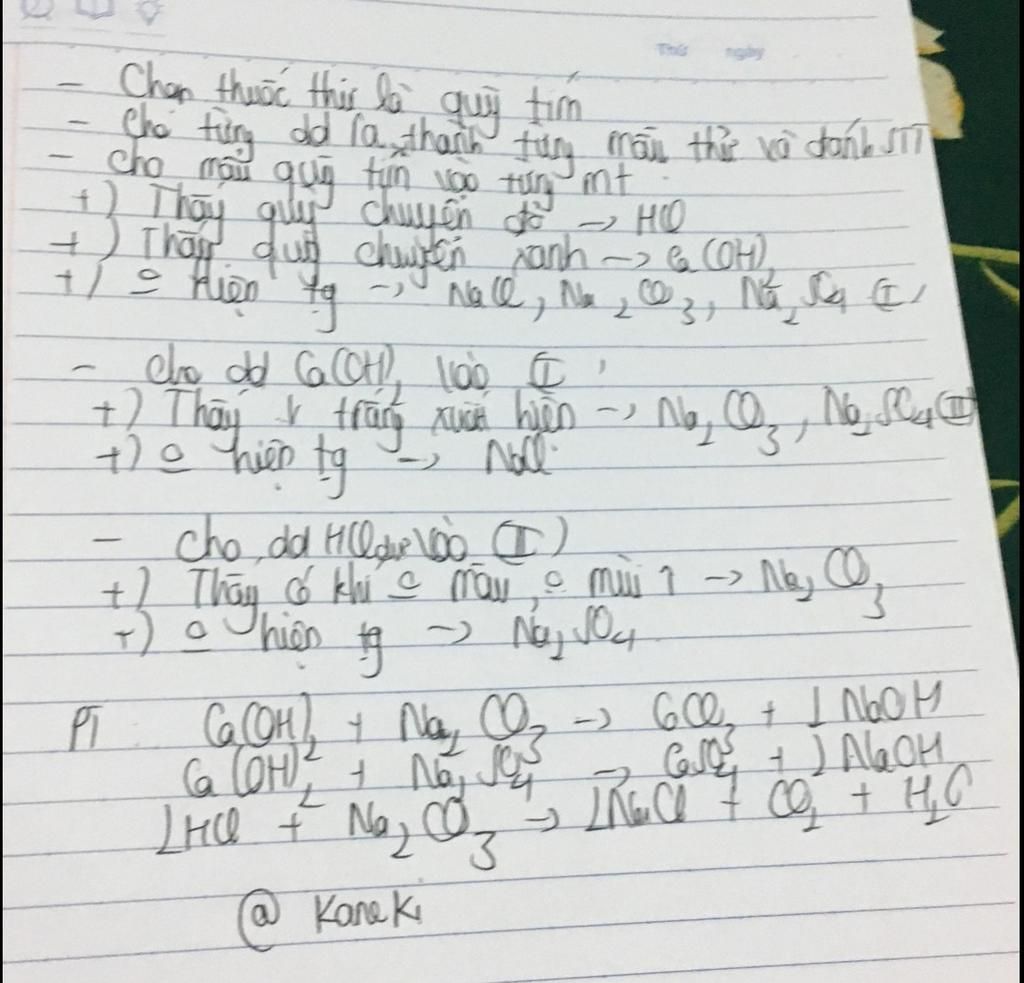 Thứ ngày
- Chọn thuốc thử là quỳ tím
- Cho từng dd ra thành từng mẫu thử và đánh STT
- Cho mẫu quỳ tím vào từng mt.
+) Thấy quỳ chuyển đỏ → HCl
+) Thấy quỳ chuyển xanh → Ca(OH)2
+) 0 hiện tg → NaCl, Na2CO3, Na2SO4 (I)
- Cho dd Ca(OH)2 vào I
+) Thấy ↓ trắng xuất hiện → Na2CO3, Na2SO4 (II)
+) 0 hiện tg → NaCl.
- Cho dd HCl dư vào (II)
+) Thấy có khí 0 màu, 0 mùi ↑ → Na2CO3
+) 0 hiện tg → Na2SO4
PT Ca(OH)2 + Na2CO3 → CaCO3 + 2NaOH
Ca(OH)2 + Na2SO4 → CaSO4 + 2NaOH
2HCl + Na2CO3 → 2NaCl + CO2 + H2O
@ Kaneki